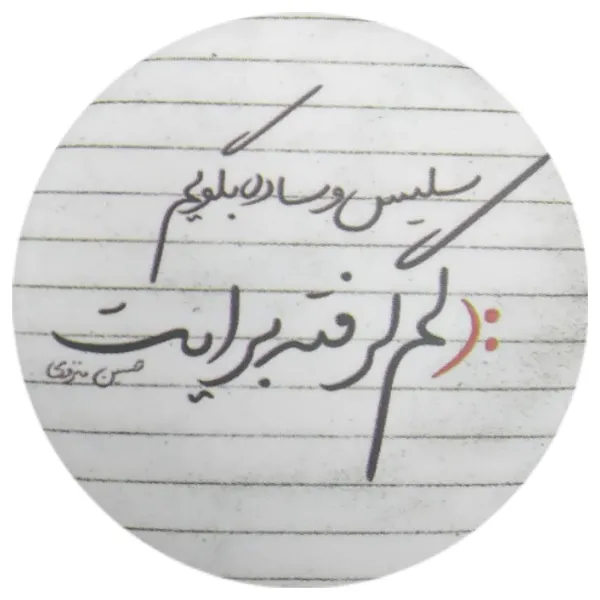 سلیس و ساده بگویم
دلم گرفته برایت
حسین منزوی